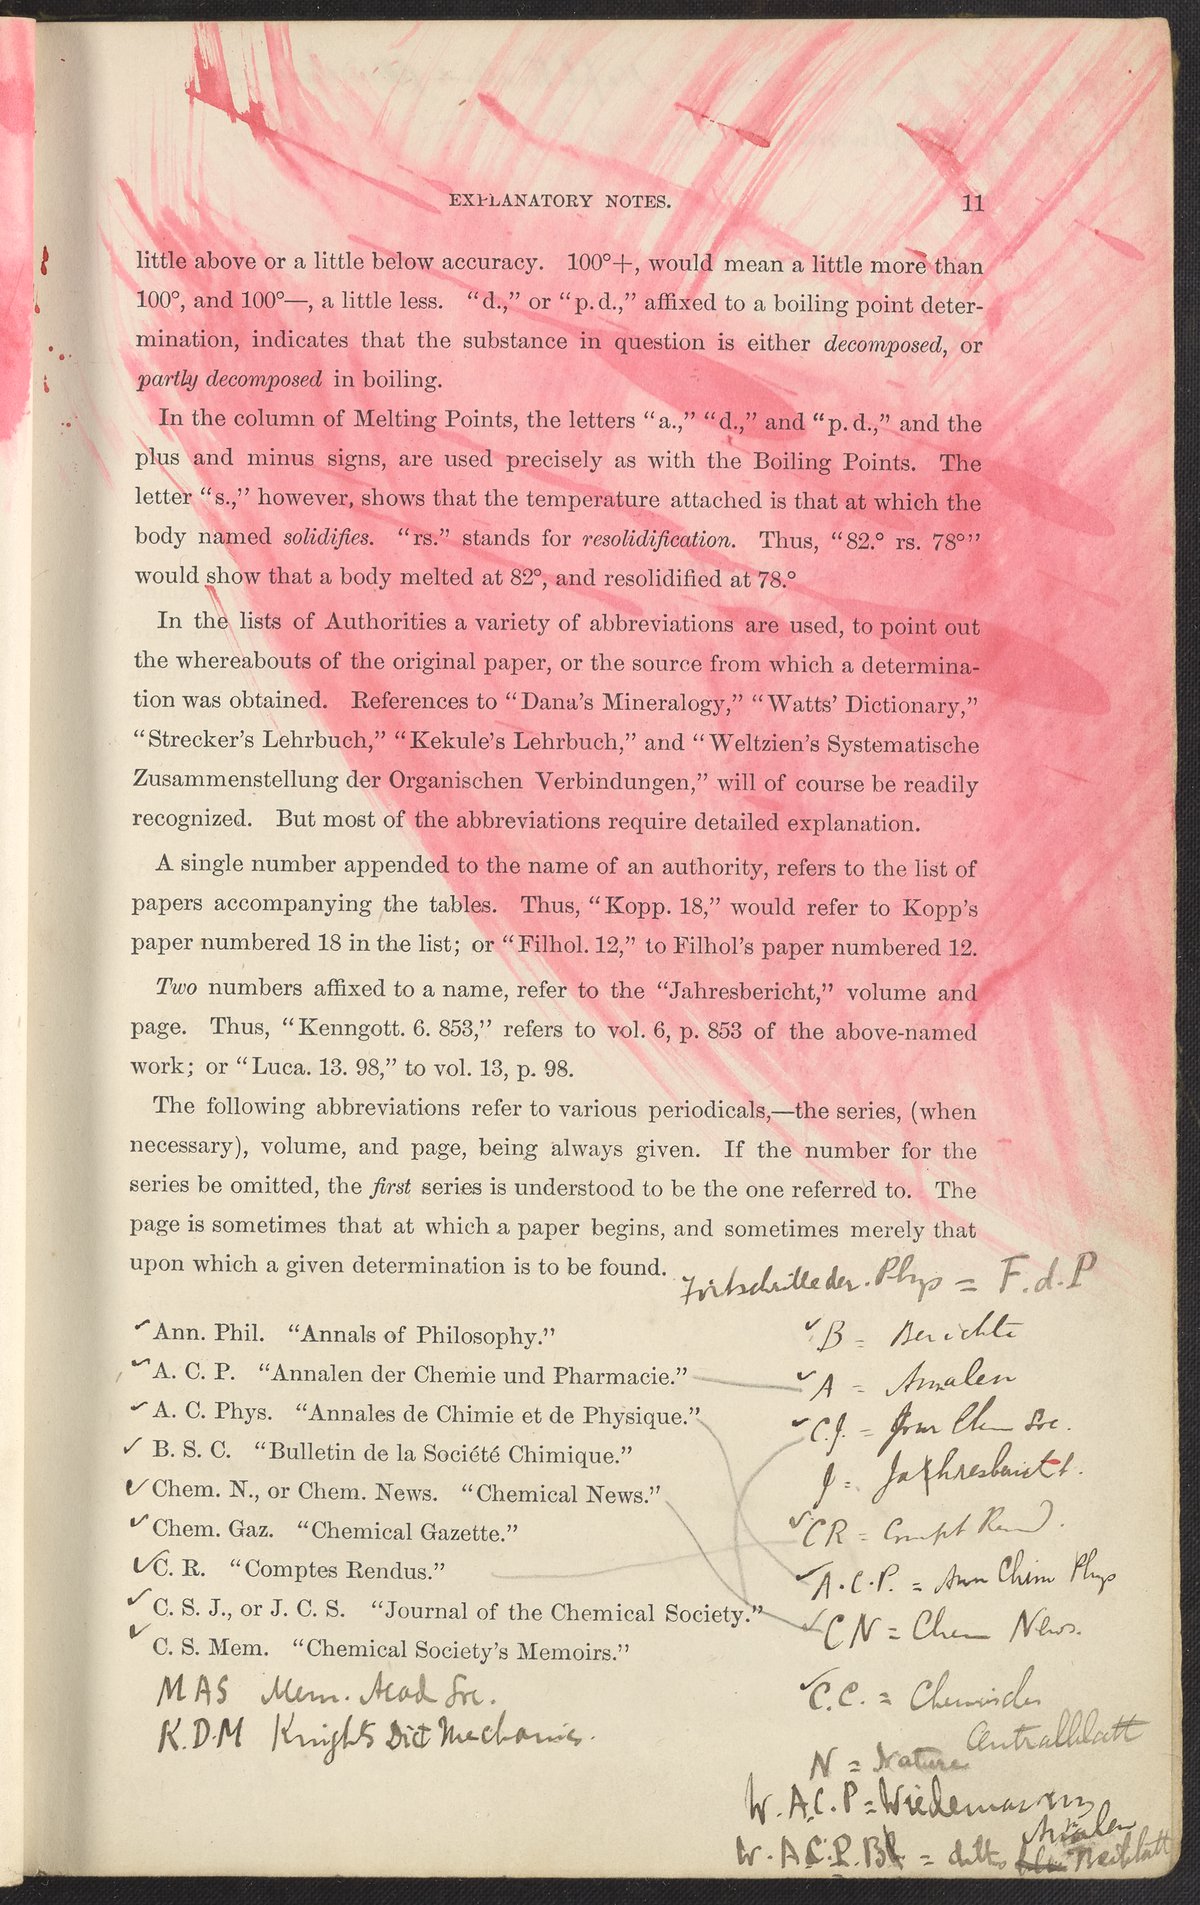 EXPLANATORY NOTES. 11
little above or a little below accuracy. 100°+, would mean a little more than
100°, and 100°—, a little less. “d.,” or “p. d.,” affixed to a boiling point deter-
mination, indicates that the substance in question is either decomposed, or
partly decomposed in boiling.
In the column of Melting Points, the letters “a.,” “d.,” and “p. d.,” and the
plus and minus signs, are used precisely as with the Boiling Points. The
letter “s.,” however, shows that the temperature attached is that at which the
body named solidifies. “rs.” stands for resolidification. Thus, “82.° rs. 78°”
would show that a body melted at 82°, and resolidified at 78.°
In the lists of Authorities a variety of abbreviations are used, to point out
the whereabouts of the original paper, or the source from which a determina-
tion was obtained. References to “Dana’s Mineralogy,” “Watts’ Dictionary,”
“Strecker’s Lehrbuch,” “Kekule’s Lehrbuch,” and “Weltzien’s Systematische
Zusammenstellung der Organischen Verbindungen,” will of course be readily
recognized. But most of the abbreviations require detailed explanation.
A single number appended to the name of an authority, refers to the list of
papers accompanying the tables. Thus, “Kopp. 18,” would refer to Kopp’s
paper numbered 18 in the list; or “Filhol. 12,” to Filhol’s paper numbered 12.
Two numbers affixed to a name, refer to the “Jahresbericht,” volume and
page. Thus, “Kenngott. 6. 853,” refers to vol. 6, p. 853 of the above-named
work; or “Luca. 13. 98,” to vol. 13, p. 98.
The following abbreviations refer to various periodicals,—the series, (when
necessary), volume, and page, being always given. If the number for the
series be omitted, the first series is understood to be the one referred to. The
page is sometimes that at which a paper begins, and sometimes merely that
upon which a given determination is to be found.
Fortschritte der. Phys = F. d. P
✓Ann. Phil. “Annals of Philosophy.”
✓A. C. P. “Annalen der Chemie und Pharmacie.”
✓A. C. Phys. “Annales de Chimie et de Physique.”
✓B. S. C. “Bulletin de la Société Chimique.”
✓Chem. N., or Chem. News. “Chemical News.”
✓Chem. Gaz. “Chemical Gazette.”
✓C. R. “Comptes Rendus.”
✓C. S. J., or J. C. S. “Journal of the Chemical Society.”
✓C. S. Mem. “Chemical Society’s Memoirs.”
MAS Mem. Acad Soc.
K. D. M Knights Dict Mechanics.
✓B = Berichte
✓A = Annalen
✓C.J. = Jour Chem Soc.
J = Jahresbericht.
✓CR = Compt Rend.
✓A.C.P. = Ann Chim Phys
✓CN = Chem News.
✓C.C. = Chemisches
Centralblatt
N = Nature
W. A.C.P = Wiedemann
Analen
W. A C. P. Bl = ditto Beiblatt